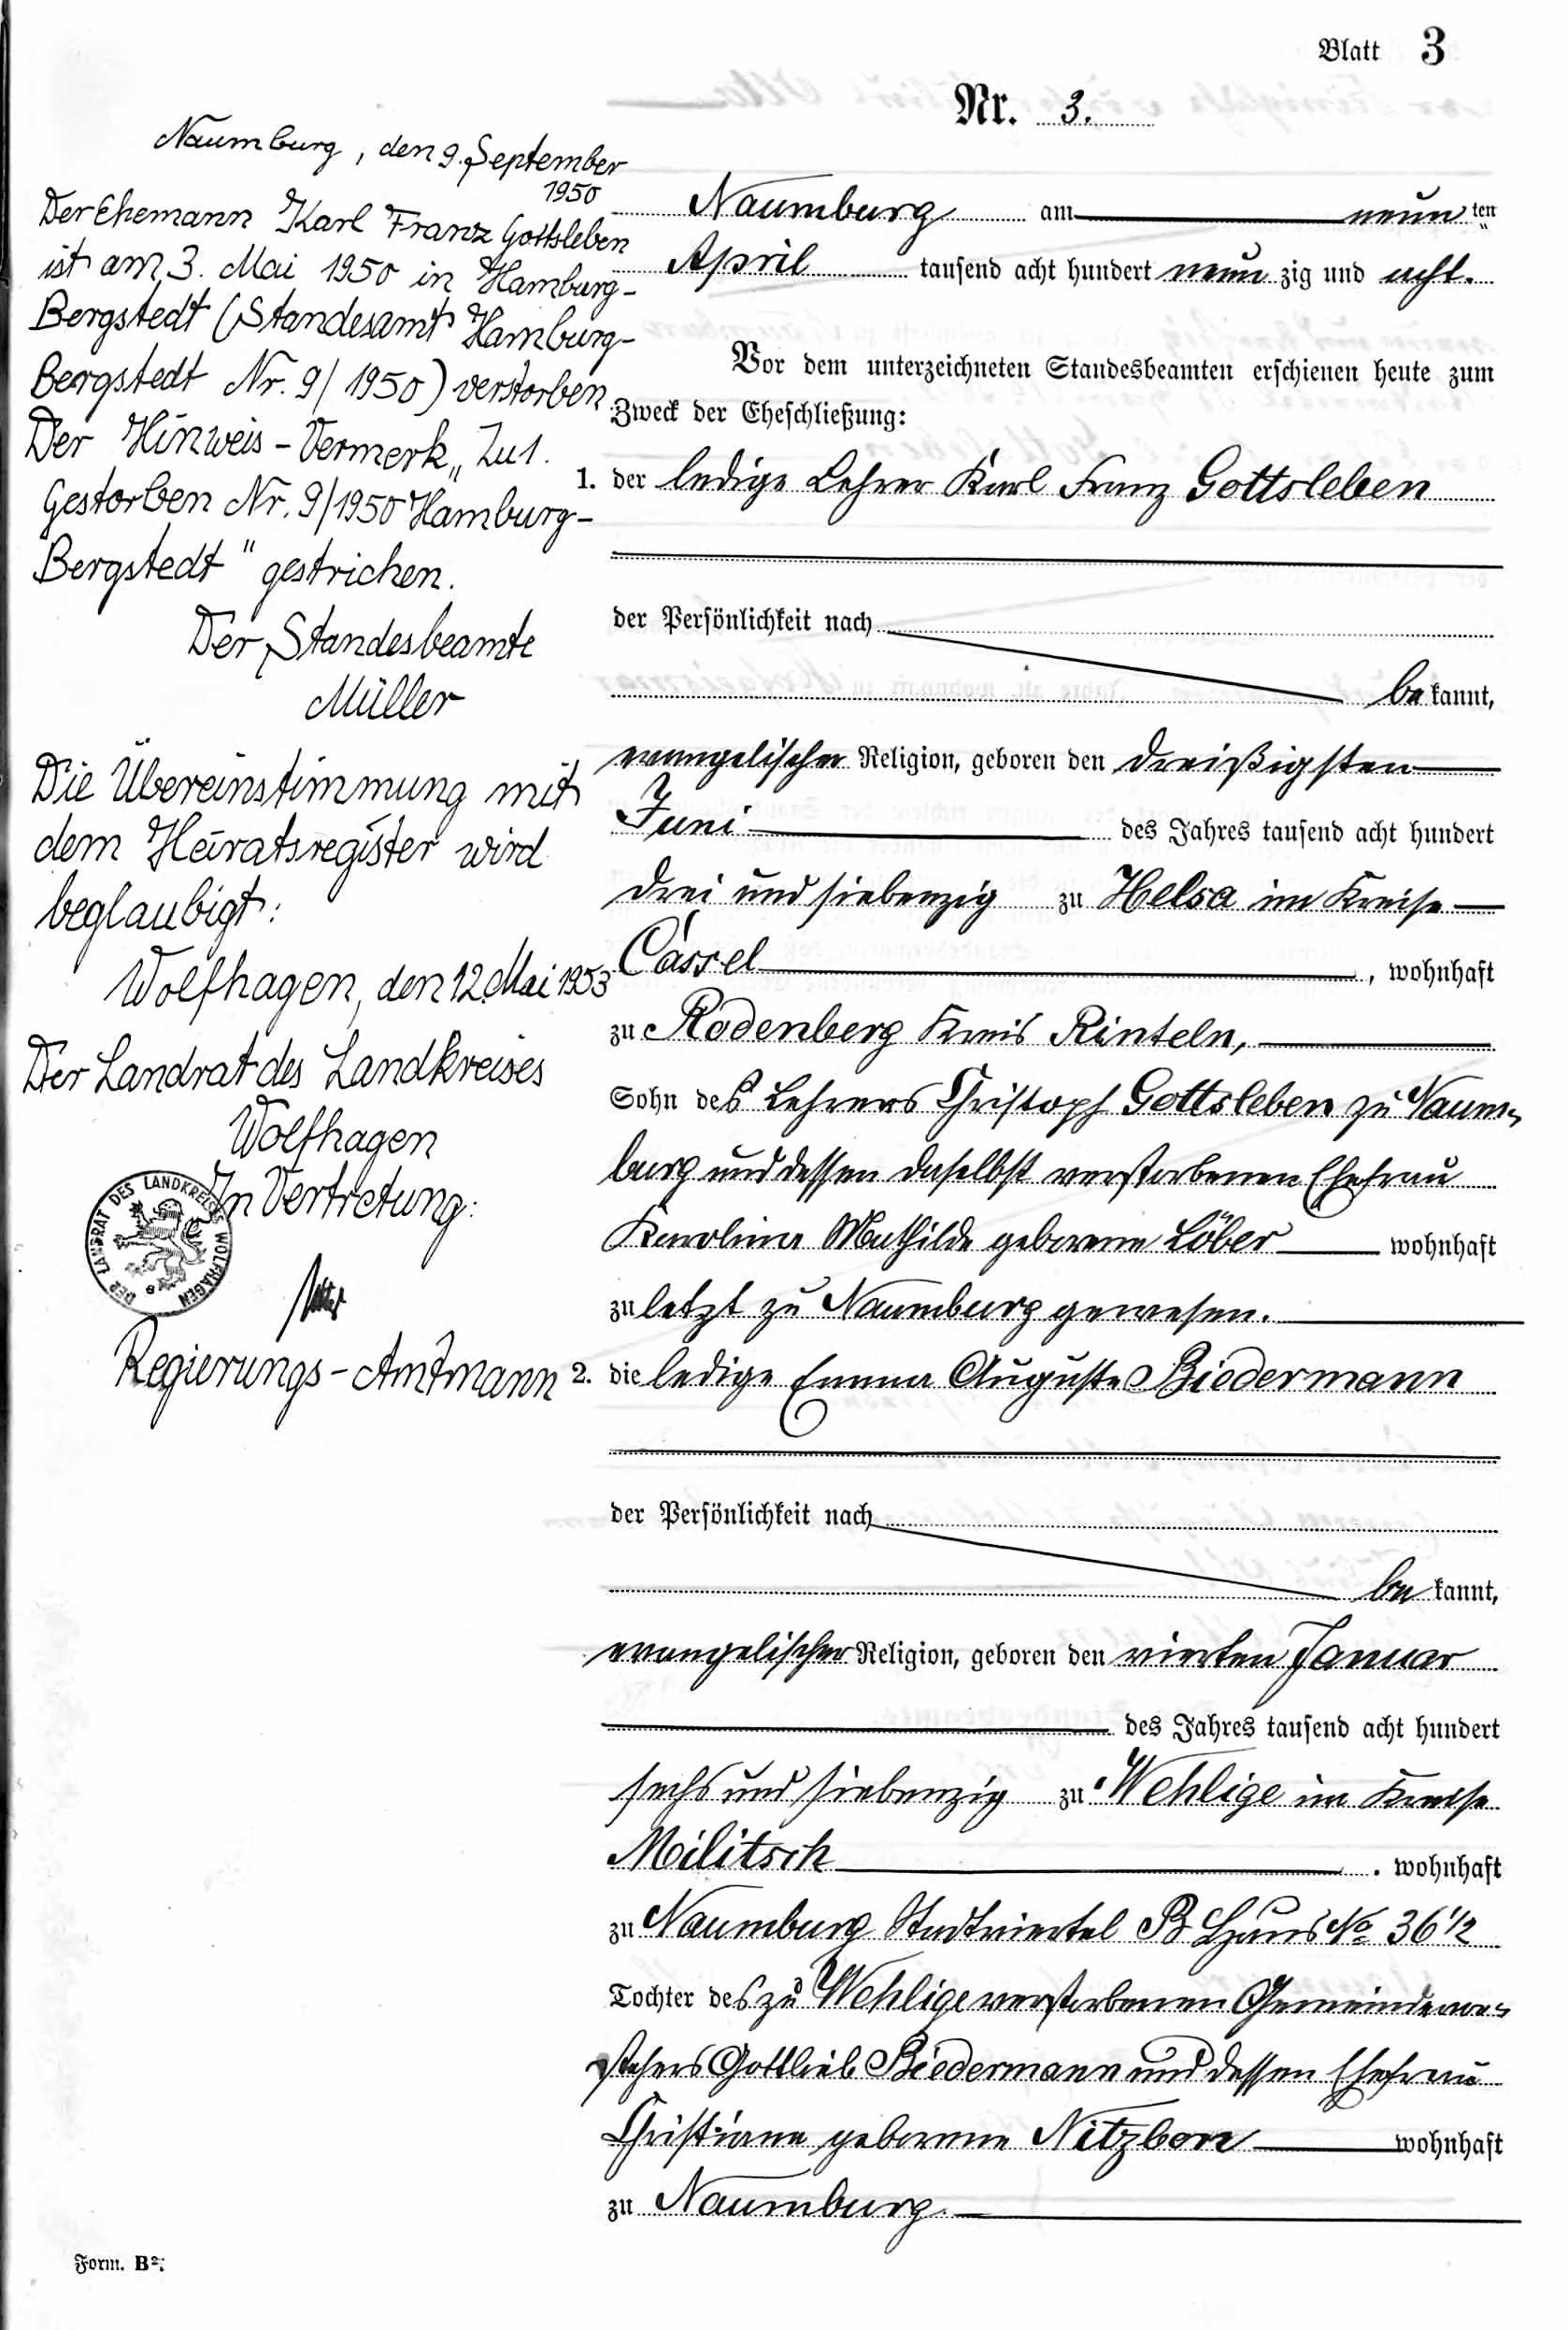 Blatt 3
Nr. 3.
Naumburg, den 9. September
1950
Der Ehemann Karl Franz Gottsleben
ist am 3. Mai 1950 in Hamburg-
Bergstedt (Standesamt Hamburg-
Bergstedt Nr. 9/1950) verstorben
Der Hinweis-Vermerk „Zu 1.
Gestorben Nr. 9/1950 Hamburg-
Bergstedt" gestrichen.
Der Standesbeamte
Müller
Die Übereinstimmung mit
dem Heiratsregister wird
beglaubigt:
Wolfhagen, den 12. Mai 1953
Der Landrat des Landkreises
Wolfhagen
In Vertretung:
DER LANDRAT DES LANDKREISES WOLFHAGEN
Regierungs-Amtmann
Naumburg am neunten
April tausend acht hundert neunzig und acht.
Vor dem unterzeichneten Standesbeamten erschienen heute zum
Zweck der Eheschließung:
1. der ledige Lehrer Karl Franz Gottsleben
der Persönlichkeit nach
bekannt,
evangelischer Religion, geboren den dreißigsten
Juni des Jahres tausend acht hundert
drei und siebenzig zu Helsa im Kreise
Cassel, wohnhaft
zu Rodenberg Kreis Rinteln,
Sohn des Lehrers Christoph Gottsleben zu Naum-
burg und dessen daselbst verstorbenen Ehefrau
Karoline Mathilde geborene Löber wohnhaft
zuletzt zu Naumburg gewesen.
2. die ledige Emma Auguste Biedermann
der Persönlichkeit nach
bekannt,
evangelischer Religion, geboren den vierten Januar
des Jahres tausend acht hundert
sechs und siebenzig zu Wehlige im Kreise
Militsch. wohnhaft
zu Naumburg Stadtviertel B Haus No 36 1/2
Tochter des zu Wehlige verstorbenen Gemeindevor-
stehers Gottlieb Biedermann und dessen Ehefrau
Christiane geborene Nitzbon wohnhaft
zu Naumburg.
Form. B².